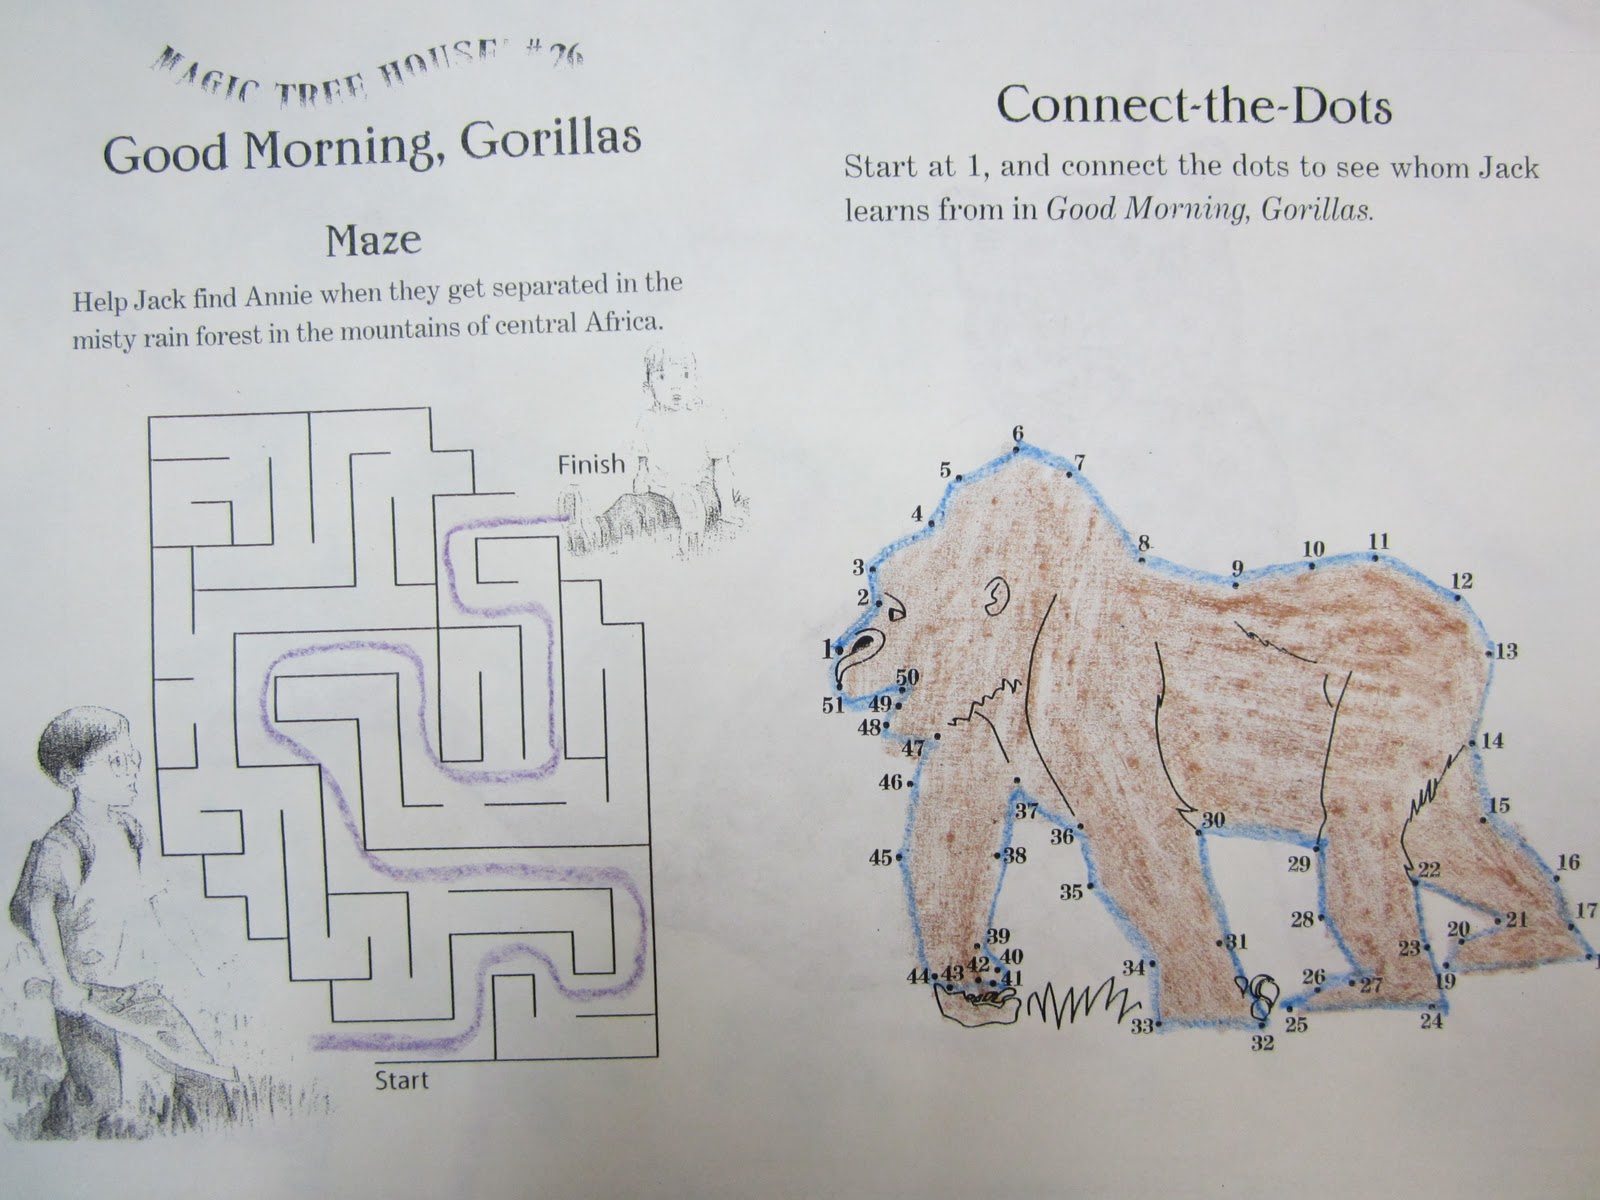 MAGIC TREE HOUSE #26
Good Morning, Gorillas
Maze
Help Jack find Annie when they get separated in the
misty rain forest in the mountains of central Africa.
Finish
Start
Connect-the-Dots
Start at 1, and connect the dots to see whom Jack
learns from in Good Morning, Gorillas.
1
2
3
4
5
6
7
8
9
10
11
12
13
14
15
16
17
19
20
21
22
23
24
25
26
27
28
29
30
31
32
33
34
35
36
37
38
39
40
41
42
43
44
45
46
47
48
49
50
51